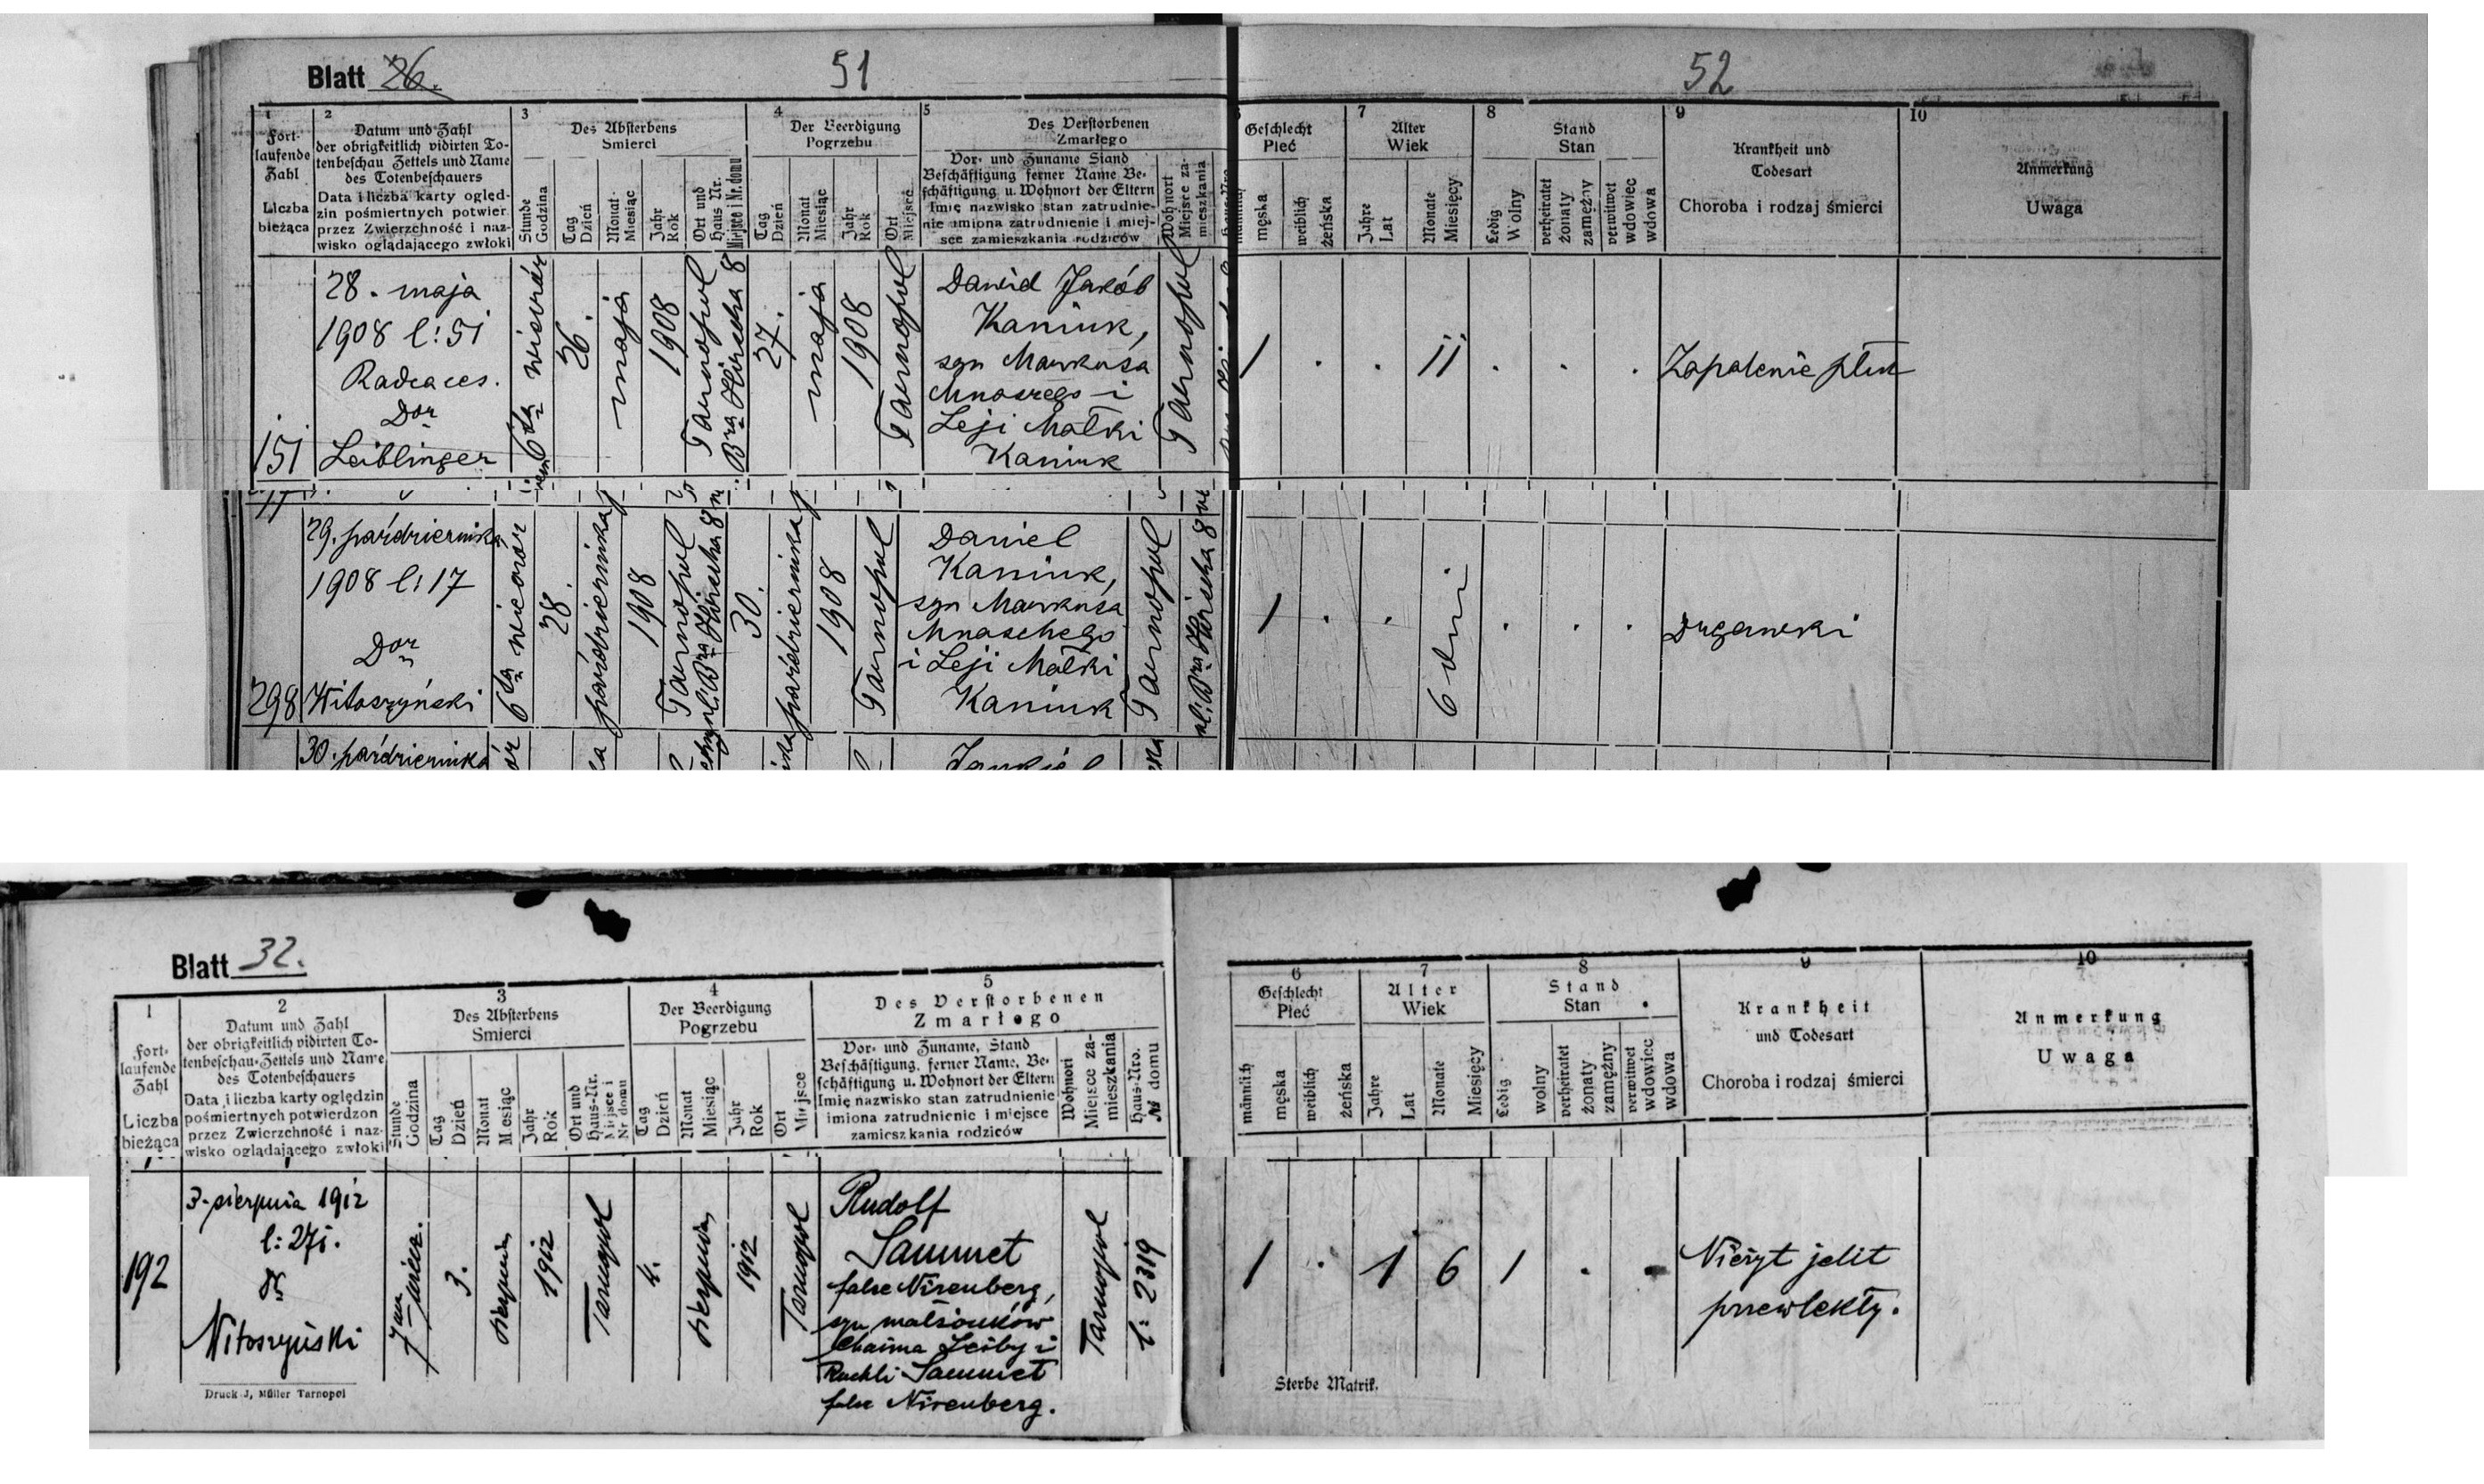 Blatt 26.
51
52
1
2
3
4
5
7
8
9
10
Fort-
laufende
Zahl
Liczba
bieżąca
Datum und Zahl
der obrigkeitlich vidirten To-
tenbeschau Zettels und Name
des Totenbeschauers
Data i liczba karty oględ-
zin pośmiertnych potwier
przez Zwierzchność i naz-
wisko oglądającego zwłoki
Des Absterbens
Smierci
Stunde
Godzina
Tag
Dzień
Monat
Miesiąc
Jahr
Rok
Ort und
Haus Nr.
Miejsce i Nr. domu
Der Beerdigung
Pogrzebu
Tag
Dzień
Monat
Miesiąc
Jahr
Rok
Ort
Miejsce
Des Verstorbenen
Zmarłego
Vor- und Zuname Stand
Beschäftigung ferner Name Be-
schäftigung u. Wohnort der Eltern
Imię nazwisko stan zatrudnie-
nie imiona zatrudnienie i miej-
sce zamieszkania rodziców
Wohnort
Miejsce za-
mieszkania
Geschlecht
Płeć
męska
weiblich
żeńska
Alter
Wiek
Jahre
Lat
Monate
Miesięcy
Stand
Stan
Ledig
Wolny
verheiratet
żonaty
zamężny
verwitwet
wdowiec
wdowa
Krankheit und
Todesart
Choroba i rodzaj śmierci
Anmerkung
Uwaga
151
28. maja
1908 l: 51
Radca ces.
Dor
Leiblinger
6ta wieczór
26.
maja
1908
Tarnopol
Bra Hirscha 8
27.
maja
1908
Tarnopol
Dawid Jakób
Kaniuk,
syn Markusa
Mnaszego i
Leji Małki
Kaniuk
Tarnopol
1 . . 11 . . .
Zapalenie płuc
298
29. października
1908 l: 17
Dor
Witoszyński
6ta wieczór
28.
października
1908
Tarnopol
ul. Bra Hirscha 8
30.
października
1908
Tarnopol
Daniel
Kaniuk,
syn Markusa
Mnaschego
i Leji Małki
Kaniuk
Tarnopol
ul. Bra Hirscha 8
1 . . 6 dni . . .
Drgawki
30. października
Blatt 32.
1
2
3
4
5
6
7
8
9
10
Fort-
laufende
Zahl
Liczba
bieżąca
Datum und Zahl
der obrigkeitlich vidirten To-
tenbeschau-Zettels und Name
des Totenbeschauers
Data i liczba karty oględzin
pośmiertnych potwierdzon
przez Zwierzchność i naz-
wisko oglądającego zwłoki
Des Absterbens
Smierci
Stunde
Godzina
Tag
Dzień
Monat
Miesiąc
Jahr
Rok
Ort und
Haus-Nr.
Miejsce i
Nr domu
Der Beerdigung
Pogrzebu
Tag
Dzień
Monat
Miesiąc
Jahr
Rok
Ort
Miejsce
Des Verstorbenen
Zmarłego
Vor- und Zuname, Stand
Beschäftigung, ferner Name, Be-
schäftigung u. Wohnort der Eltern
Imię nazwisko stan zatrudnienie
imiona zatrudnienie i miejsce
zamieszkania rodziców
Wohnort
Miejsce za-
mieszkania
Haus-Nro.
№ domu
Geschlecht
Płeć
männlich
męska
weiblich
żeńska
Alter
Wiek
Jahre
Lat
Monate
Miesięcy
Stand
Stan
Ledig
wolny
verheiratet
żonaty
zamężny
verwitwet
wdowiec
wdowa
Krankheit
und Todesart
Choroba i rodzaj śmierci
Anmerkung
Uwaga
192
3. sierpnia 1912
l: 271.
Dr
Witoszyński
7 wiecz.
3.
sierpnia
1912
Tarnopol
4.
sierpnia
1912
Tarnopol
Rudolf
Sammet
false Nirenberg,
syn małżonków
Chaima Leiby i
Ruchli Sammet
false Nirenberg.
Tarnopol
l: 2319
1 . 1 6 1 . .
Nieżyt jelit
przewlekły.
Druck J, Müller Tarnopol
Sterbe Matrik.